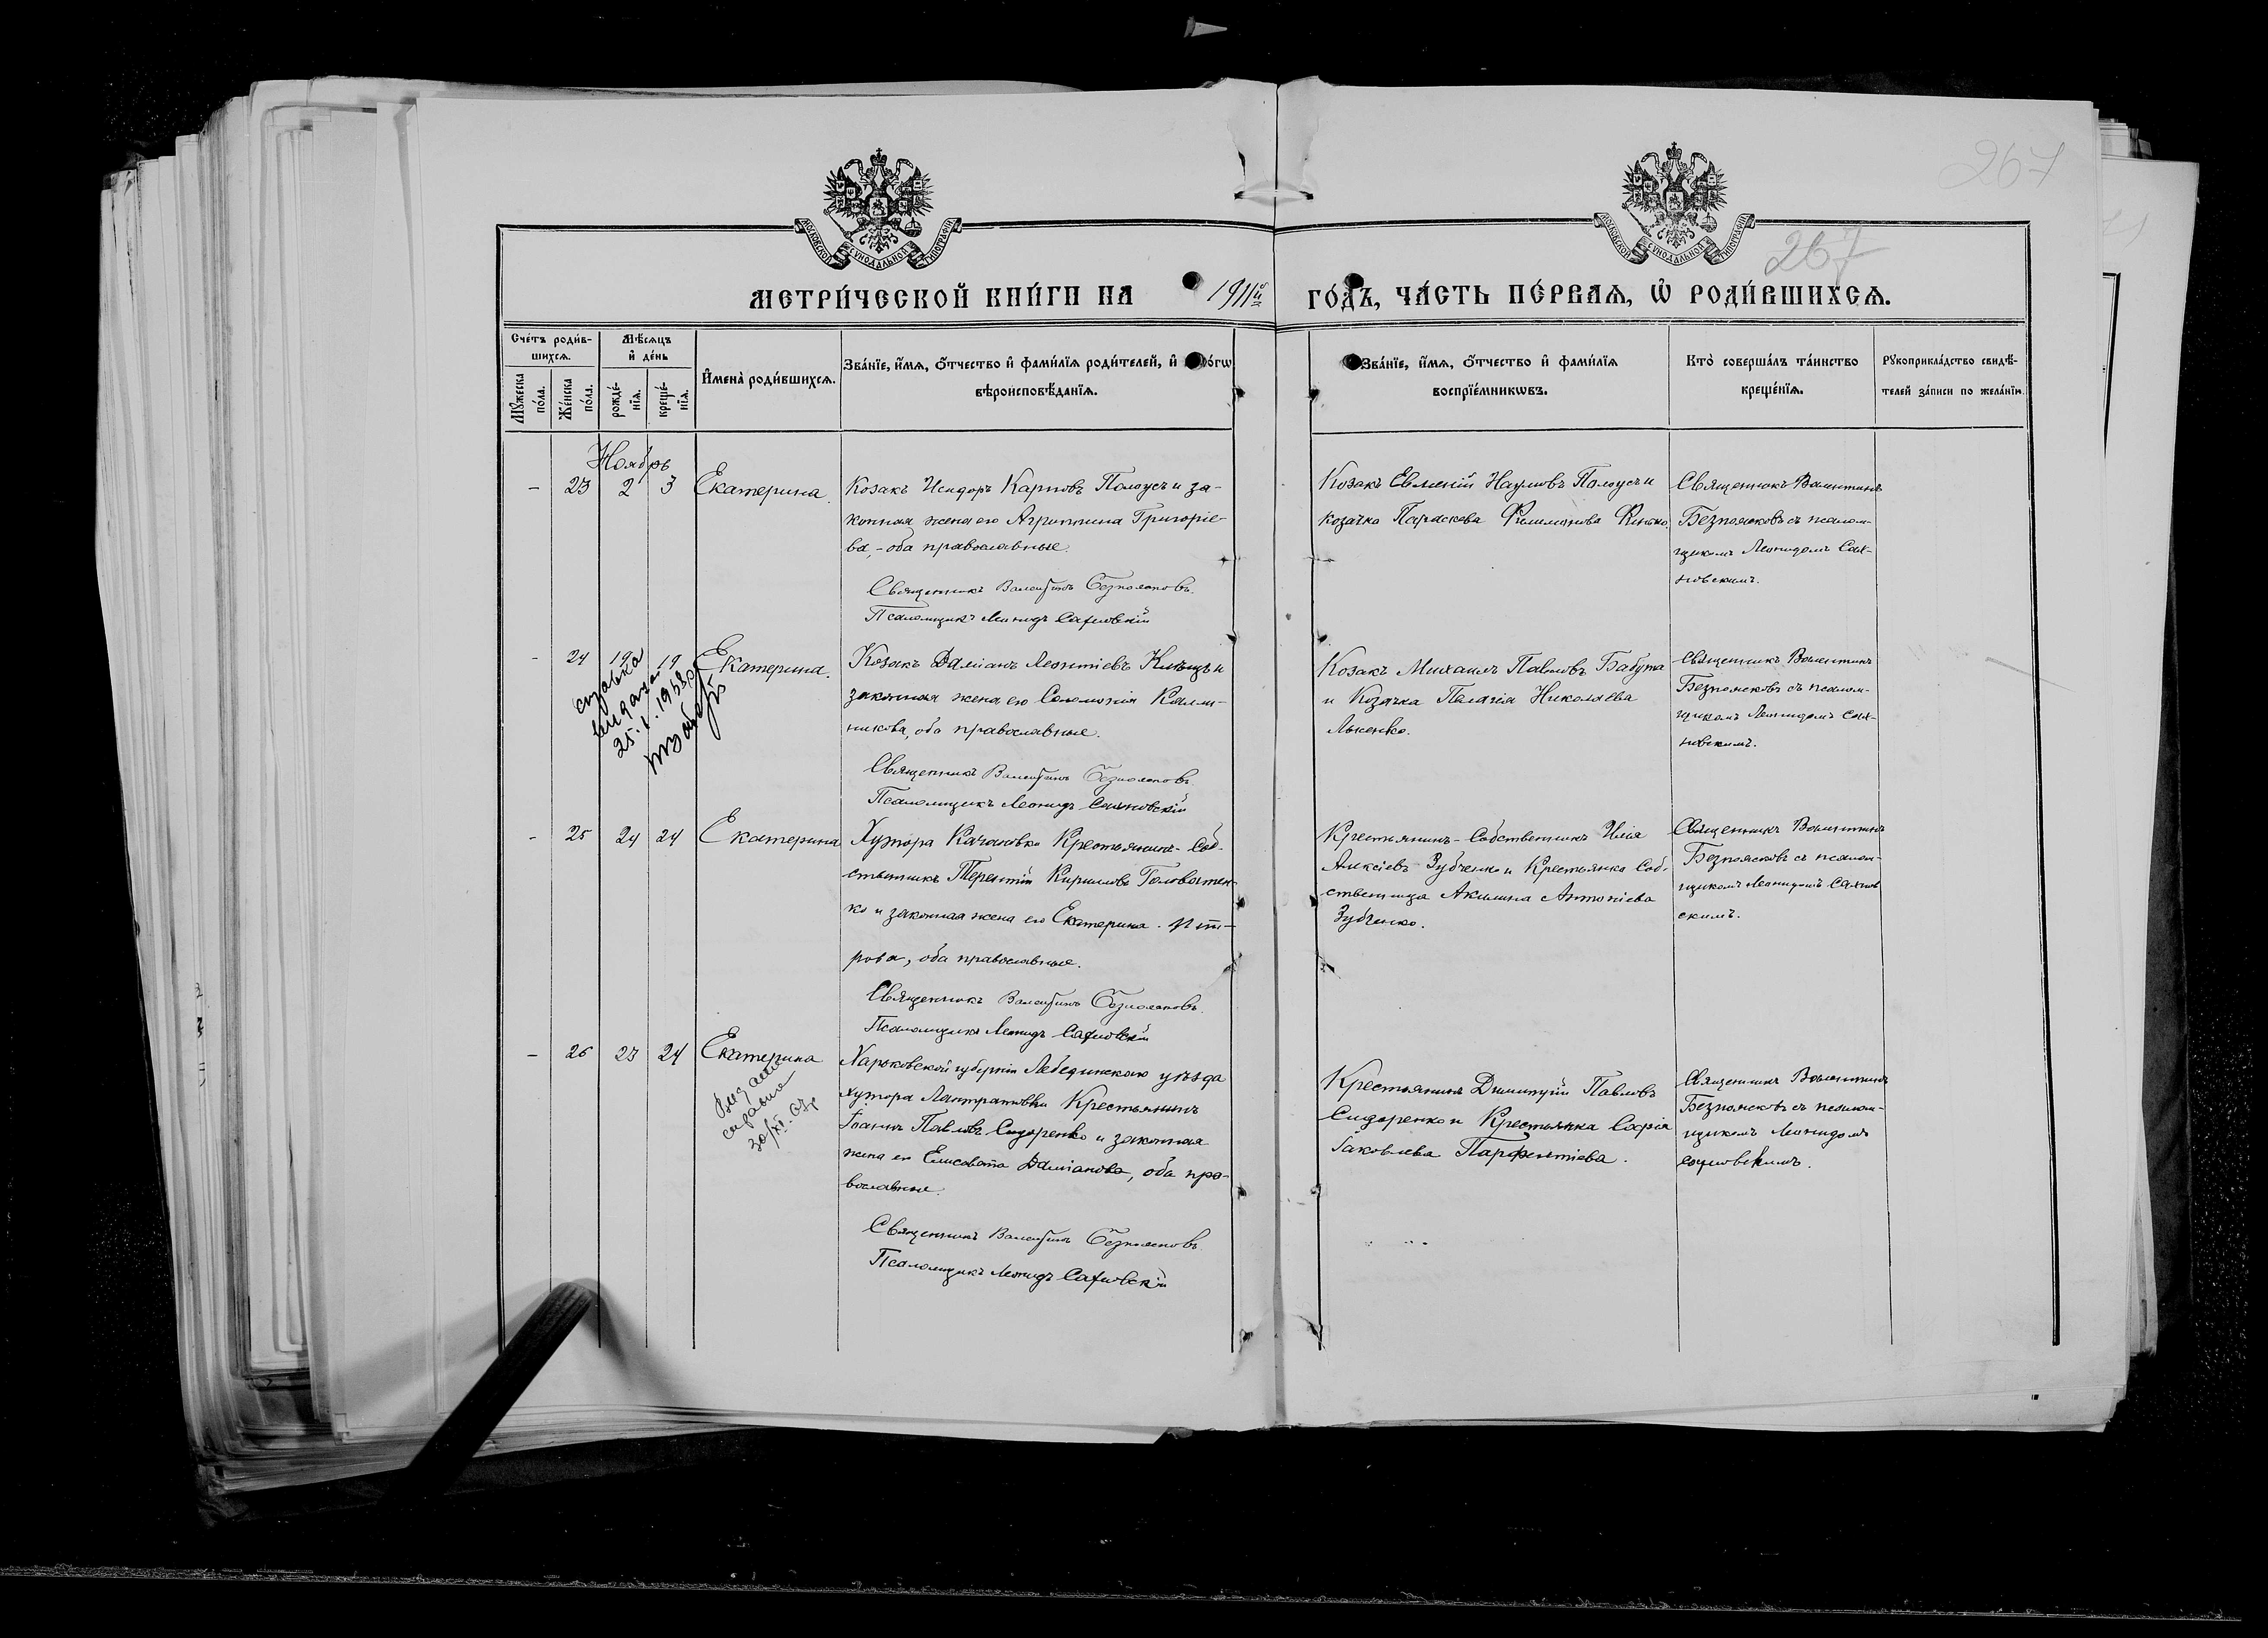 267
МОСКОВСКОЙ СѴНОДАЛЬНОЙ ТИПОГРАФІИ
МОСКОВСКОЙ СѴНОДАЛЬНОЙ ТИПОГРАФІИ
267
МЕТРИ́ЧЕСКОЙ КНИ́ГИ НА 1911й ГО́ДЪ, ЧА́СТЬ ПЕ́РВАЯ, Ѡ РОДИ́ВШИХСЯ.
Сче́тъ роди́в-
шихся.
Му́жеска по́ла.
Же́нска по́ла.
Мѣсяцъ
и де́нь
рожде́-
нія.
креще́-
нія.
Имена̀ роди́вшихся.
Зва́ніе, и́мя, о́тчество и фами́лія роди́телей, и
вѣроисповѣ́данія.
Зва́ніе, и́мя, о́тчество и фами́лія
воспріе́мникѡвъ.
Кто̀ соверша́лъ та́инство
креще́нія.
Рукоприкла́дство свидѣ́-
телей за́писи по жела́нію.
Ноябрь
- 23 2 3 Екатерина.
Козакъ Исидоръ Карповъ Полоусъ и за-
конная жена его Агриппина Григоріе-
ва, - оба православные.
Священникъ Валентинъ Безпоясковъ.
Псаломщикъ Леонидъ Сахновскій
Козакъ Евменій Наумовъ Полоусъ и
козачка Параскева Филимонова
Священникъ Валентинъ
Безпоясковъ съ псалом-
щикомъ Леонидомъ Сах-
новскимъ.
- 24 19 19 Екатерина.
справка
видана
25.1.1958 р
Козакъ Даміанъ Леонтіевъ и
законная жена его Соломонія Калли-
никова, оба православные.
Священникъ Валентинъ Безпоясковъ.
Псаломщикъ Леонидъ Сахновскій
Козакъ Михаилъ Павловъ Бабута
и Козачка Пелагія Николаева
Лысенко.
Священникъ Валентинъ
Безпоясковъ съ псалом-
щикомъ Леонидомъ Сах-
новскимъ.
- 25 24 24 Екатерина
Хутора Качановки Крестьянинъ-Соб-
ственникъ Терентій Кирилловъ Головатен-
ко и законная жена его Екатерина Пет-
рова, оба православные.
Священникъ Валентинъ Безпоясковъ.
Псаломщикъ Леонидъ Сахновскій
Крестьянинъ-Собственникъ Илія
Алексіевъ Зубченко и Крестьянка Соб-
ственница Акилина Антоніева
Зубченко.
Священникъ Валентинъ
Безпоясковъ съ псалом-
щикомъ Леонидомъ Сахнов
скимъ.
- 26 23 24 Екатерина
справка
30/XI.
Харьковской губерніи Лебединскаго уѣзда
хутора Лантратовки Крестьянинъ
Іоаннъ Павловъ Сидоренко и законная
жена его Елисавета Даміанова, оба пра-
вославные.
Священникъ Валентинъ Безпоясковъ.
Псаломщикъ Леонидъ Сахновскій
Крестьянинъ Димитрій Павловъ
Сидоренко и Крестьянка Софія
Іаковлева Парфентіева.
Священникъ Валентинъ
Безпоясковъ съ псалом-
щикомъ Леонидомъ
Сахновскимъ.